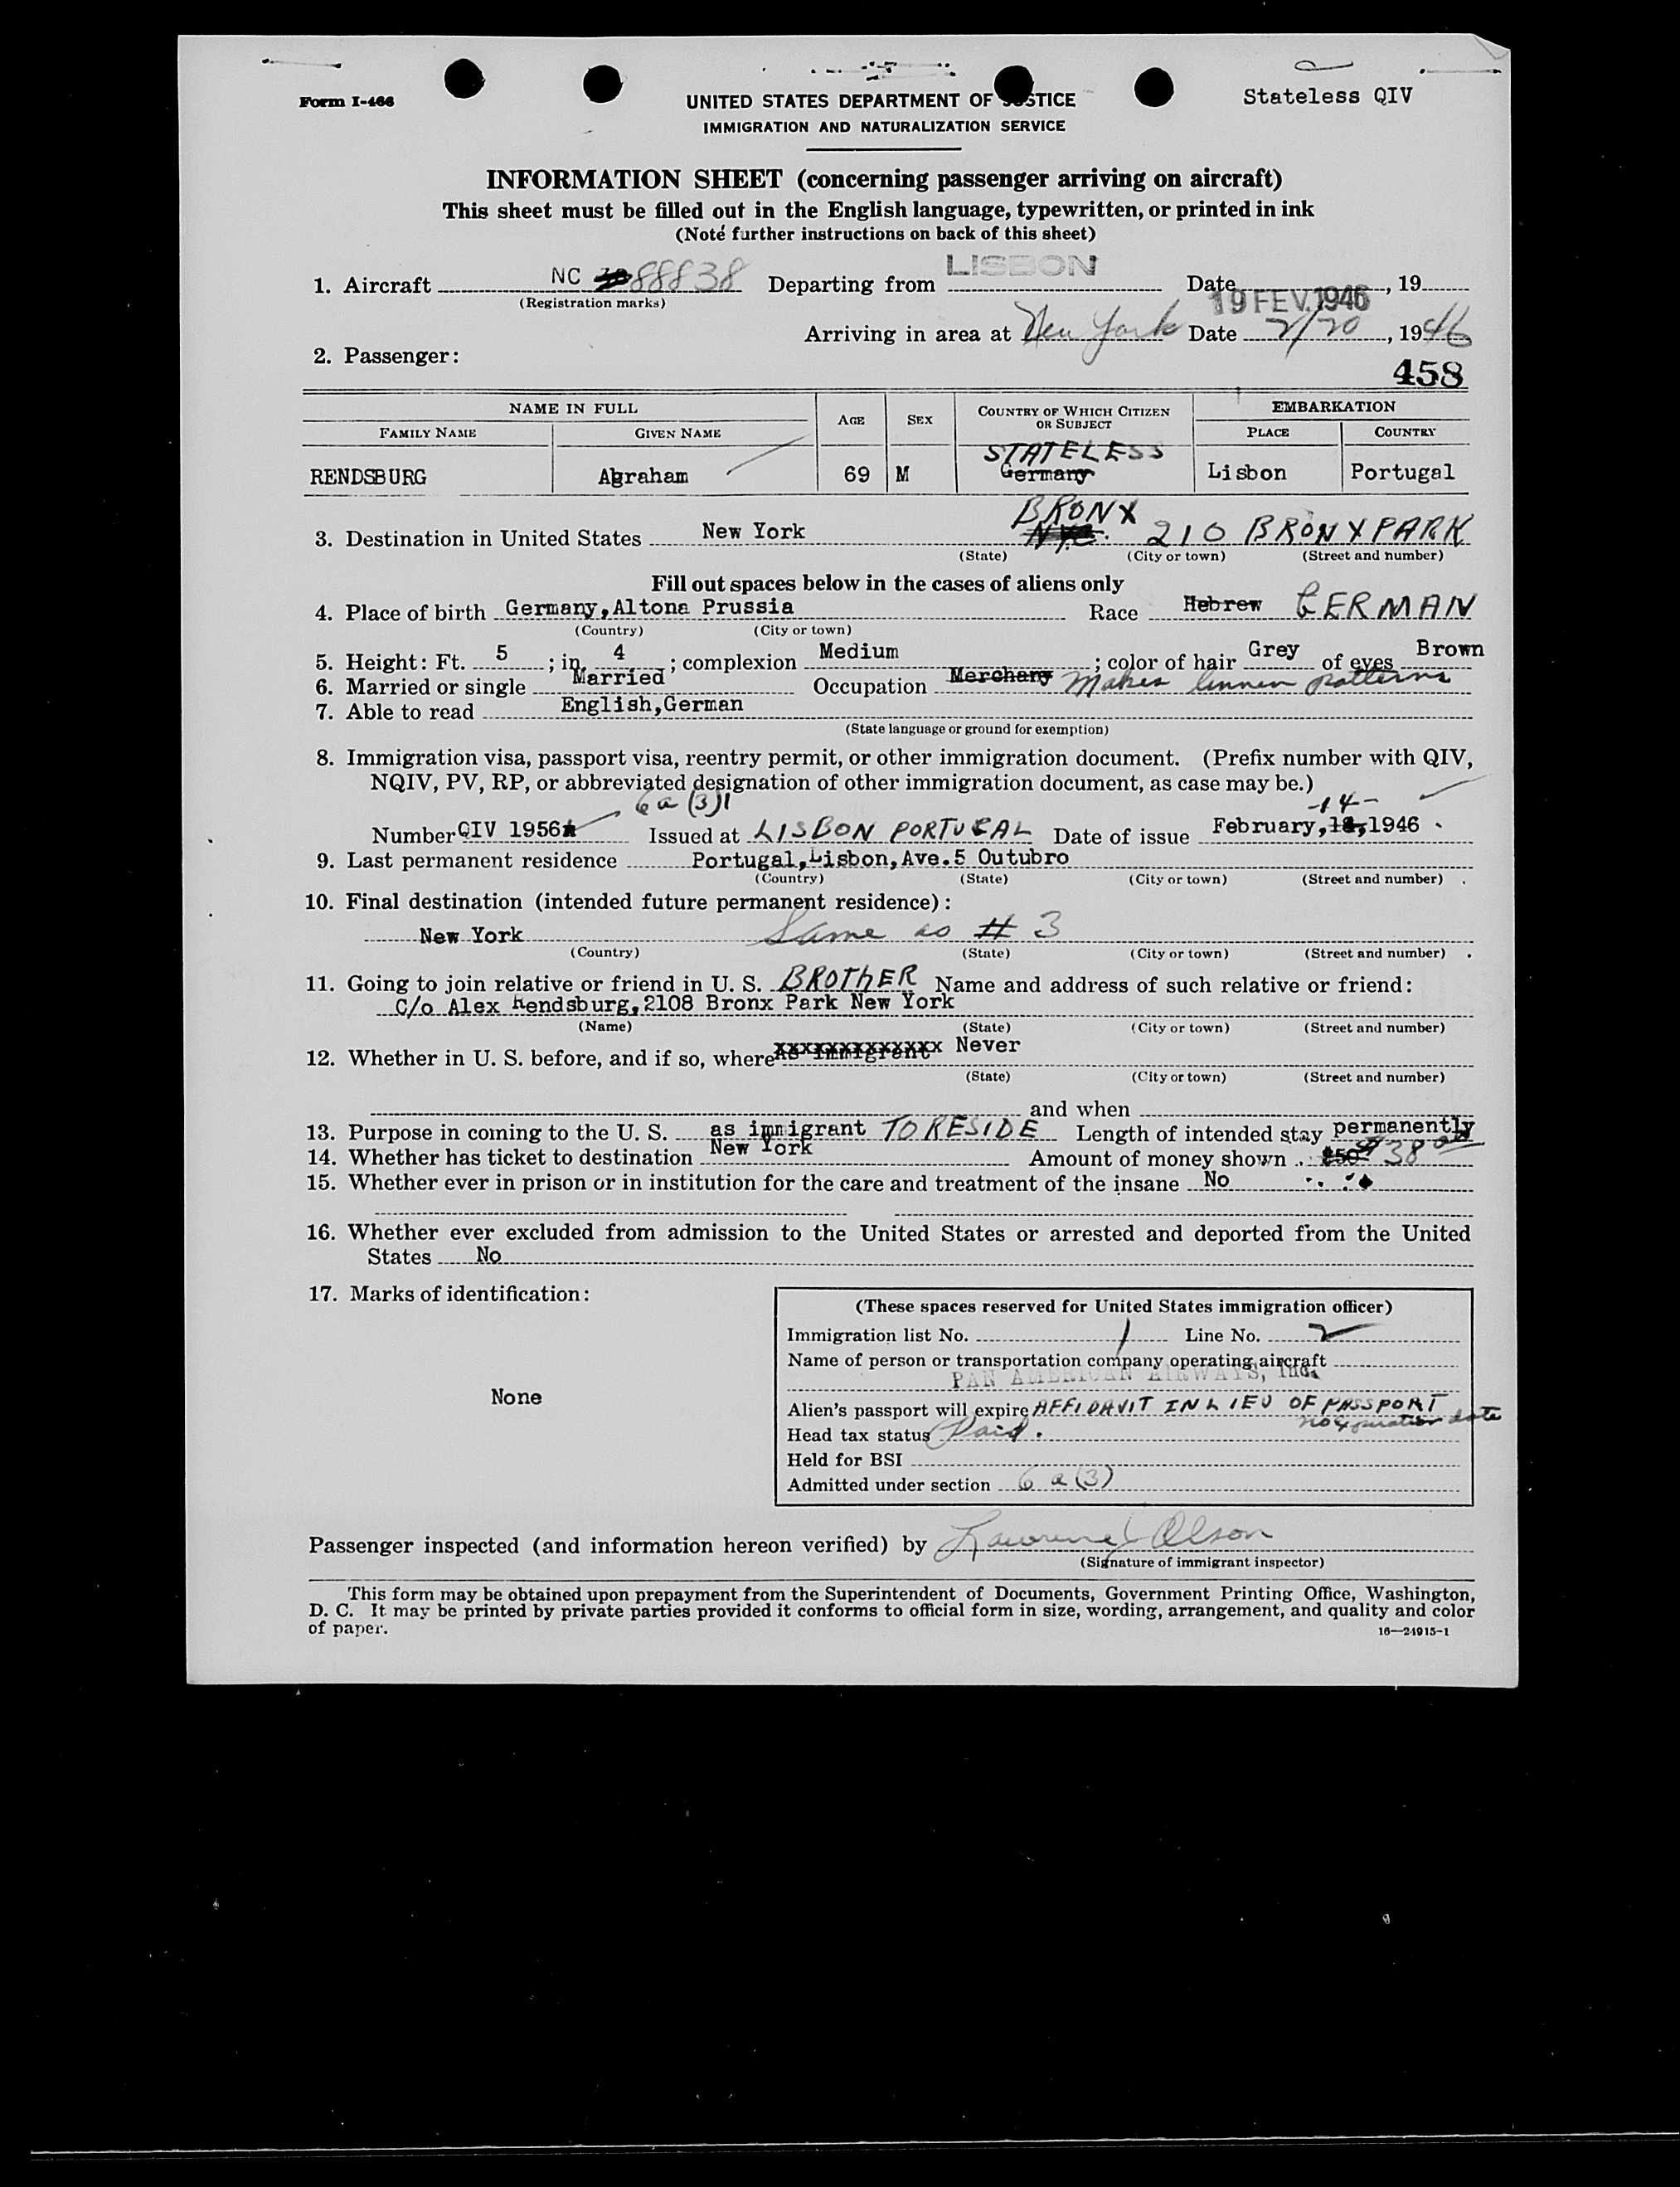 Form I-466
UNITED STATES DEPARTMENT OF JUSTICE
Stateless QIV
IMMIGRATION AND NATURALIZATION SERVICE
INFORMATION SHEET (concerning passenger arriving on aircraft)
This sheet must be filled out in the English language, typewritten, or printed in ink
(Note further instructions on back of this sheet)
1. Aircraft NC 88838 Departing from LISBON Date 19 FEV. 1946, 19
(Registration marks)
Arriving in area at New York Date 2/20, 1946
2. Passenger:
458
NAME IN FULL AGE SEX COUNTRY OF WHICH CITIZEN OR SUBJECT EMBARKATION
FAMILY NAME GIVEN NAME PLACE COUNTRY
STATELESS
RENDSBURG Abraham 69 M Germany Lisbon Portugal
BRONX
3. Destination in United States New York N.Y.C. 210 BRONX PARK
(State) (City or town) (Street and number)
Fill out spaces below in the cases of aliens only
4. Place of birth Germany, Altona Prussia Race Hebrew GERMAN
(Country) (City or town)
5. Height: Ft. 5; in. 4; complexion Medium; color of hair Grey of eyes Brown
6. Married or single Married Occupation Merchany Makes linnen patterns
7. Able to read English, German
(State language or ground for exemption)
8. Immigration visa, passport visa, reentry permit, or other immigration document. (Prefix number with QIV,
NQIV, PV, RP, or abbreviated designation of other immigration document, as case may be.)
6 a (3) -14-
Number QIV 1956 Issued at LISBON PORTUGAL Date of issue February, 18, 1946
9. Last permanent residence Portugal, Lisbon, Ave. 5 Outubro
(Country) (State) (City or town) (Street and number)
10. Final destination (intended future permanent residence):
New York Same as # 3
(Country) (State) (City or town) (Street and number)
11. Going to join relative or friend in U. S. BROTHER Name and address of such relative or friend:
C/o Alex Rendsburg, 2108 Bronx Park New York
(Name) (State) (City or town) (Street and number)
12. Whether in U. S. before, and if so, where As immigrant Never
(State) (City or town) (Street and number)
and when
13. Purpose in coming to the U. S. as immigrant TO RESIDE Length of intended stay permanently
14. Whether has ticket to destination New York Amount of money shown $50 $38 00
15. Whether ever in prison or in institution for the care and treatment of the insane No
16. Whether ever excluded from admission to the United States or arrested and deported from the United
States No
17. Marks of identification:
None
(These spaces reserved for United States immigration officer)
Immigration list No. 1 Line No. 2
Name of person or transportation company operating aircraft
PAN AMERICAN AIRWAYS, Inc.
Alien's passport will expire AFFIDAVIT IN LIEU OF PASSPORT
no expiration date
Head tax status Paid.
Held for BSI
Admitted under section 6 a (3)
Passenger inspected (and information hereon verified) by Lawrence Olson
(Signature of immigrant inspector)
This form may be obtained upon prepayment from the Superintendent of Documents, Government Printing Office, Washington,
D. C. It may be printed by private parties provided it conforms to official form in size, wording, arrangement, and quality and color
of paper.
16—24915-1